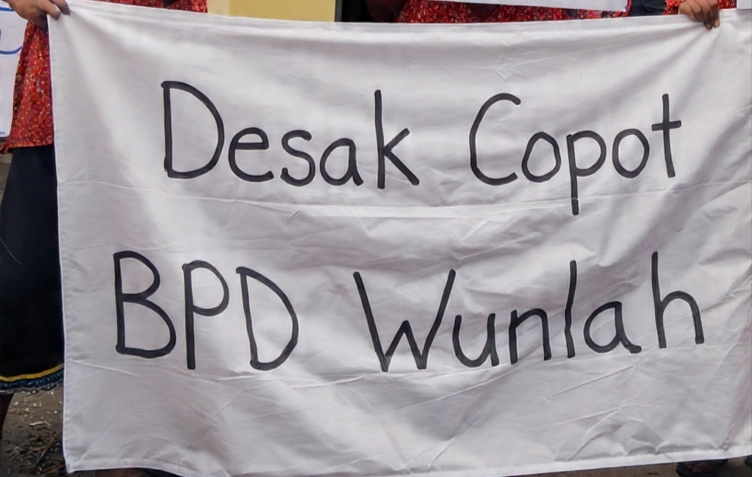 Desak Copot
BPD Wunlah